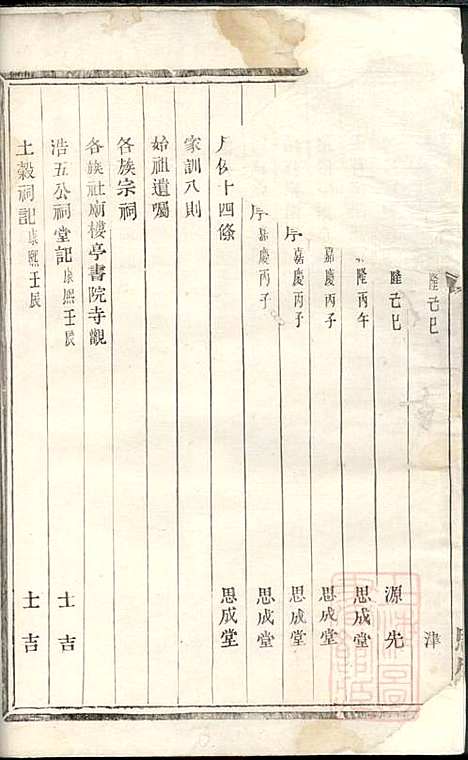 隆己巳 津
隆己巳 源光
隆丙午 思成堂
嘉慶丙子 思成堂
序 嘉慶丙子 思成堂
序 嘉慶丙子 思成堂
凡例十四條 思成堂
家訓八則
始祖遺囑
各族宗祠
各族社廟樓亭書院寺觀
浩五公祠堂記 康熙壬辰 士吉
土穀祠記 康熙壬辰 士吉